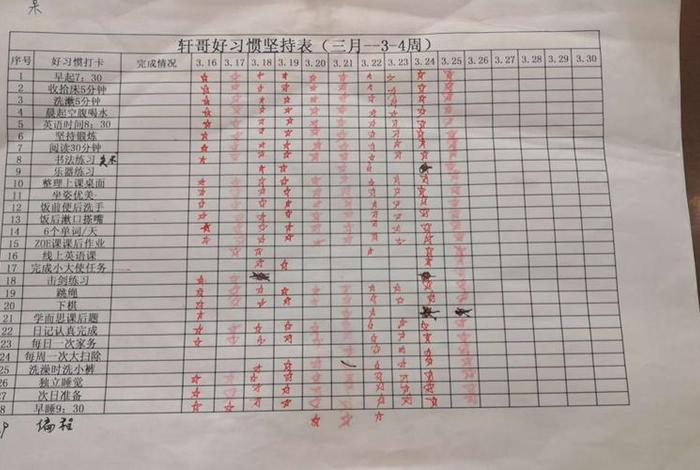 轩哥好习惯坚持表（三月--3-4周）
序号 好习惯打卡 完成情况 3.16 3.17 3.18 3.19 3.20 3.21 3.22 3.23 3.24 3.25 3.26 3.27 3.28 3.29 3.30
1 早起7：30
2 收拾床5分钟
3 洗漱5分钟
4 晨起空腹喝水
5 英语时间8：30
6 坚持锻炼
7 阅读30分钟
8 书法练习 美术
9 乐器练习
10 整理上课桌面
11 坐姿优美
12 饭前便后洗手
13 饭后漱口搭嘴
14 6个单词/天
15 ZOE课课后作业
16 线上英语课
17 完成小大使任务
18 击剑练习
19 跳绳
20 下棋
21 学而思课后题
22 日记认真完成
23 每日一次家务
24 每周一次大扫除
25 洗澡时洗小裤
26 独立睡觉
27 次日准备
8 早睡9：30
9 编程